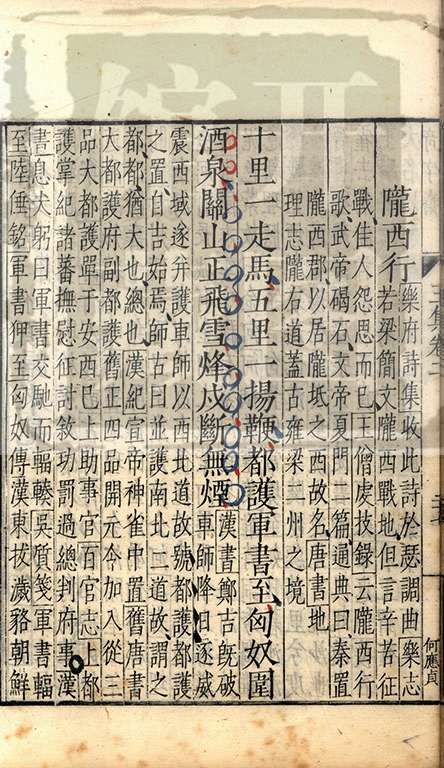 隴西行
樂府詩集收此詩於瑟調曲樂志
若梁簡文隴西戰地但言辛苦征
戰佳人怨思而已王僧虔技錄云隴西行
歌武帝碣石文帝夏門二篇通典曰秦置
隴西郡以居隴坻之西故名唐書地
理志隴右道蓋古雍梁二州之境
十里一走馬五里一揚鞭都護軍書至匈奴圍
酒泉關山正飛雪烽戍斷無煙
漢書鄭吉旣破
車師降日逐威
震西域遂并護車師以西北道故號都護都護
之置自吉始焉師古曰並護南北二道故謂之
都都猶大也總也漢紀宣帝神雀中置舊唐書
大都護府副都護舊正四品開元令加入從三
品大都護單于安西已上助事官百官志上都
護掌紀諸蕃撫慰征討敘功罰過總判府事漢
書息夫躬曰軍書交馳而輻輳吳質箋軍書輻
至陸倕銘軍書狎至匈奴傳漢東拔濊貉朝鮮
何應貞